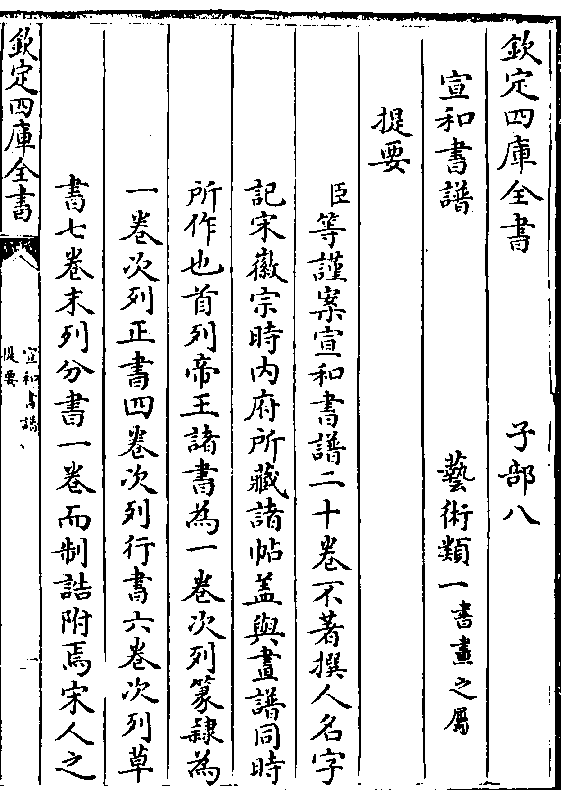 欽定四庫全書　子部八
宣和書譜　藝術類一書畫之屬
提要
臣等謹案宣和書譜二十卷不著撰人名字
記宋徽宗時内府所藏諸帖葢與畫譜同時
所作也首列帝王諸書為一卷次列篆隸為
一卷次列正書四卷次列行書六卷次列草
書七卷末列分書一卷而制誥附焉宋人之
欽定四庫全書
宣和書譜
提要
一